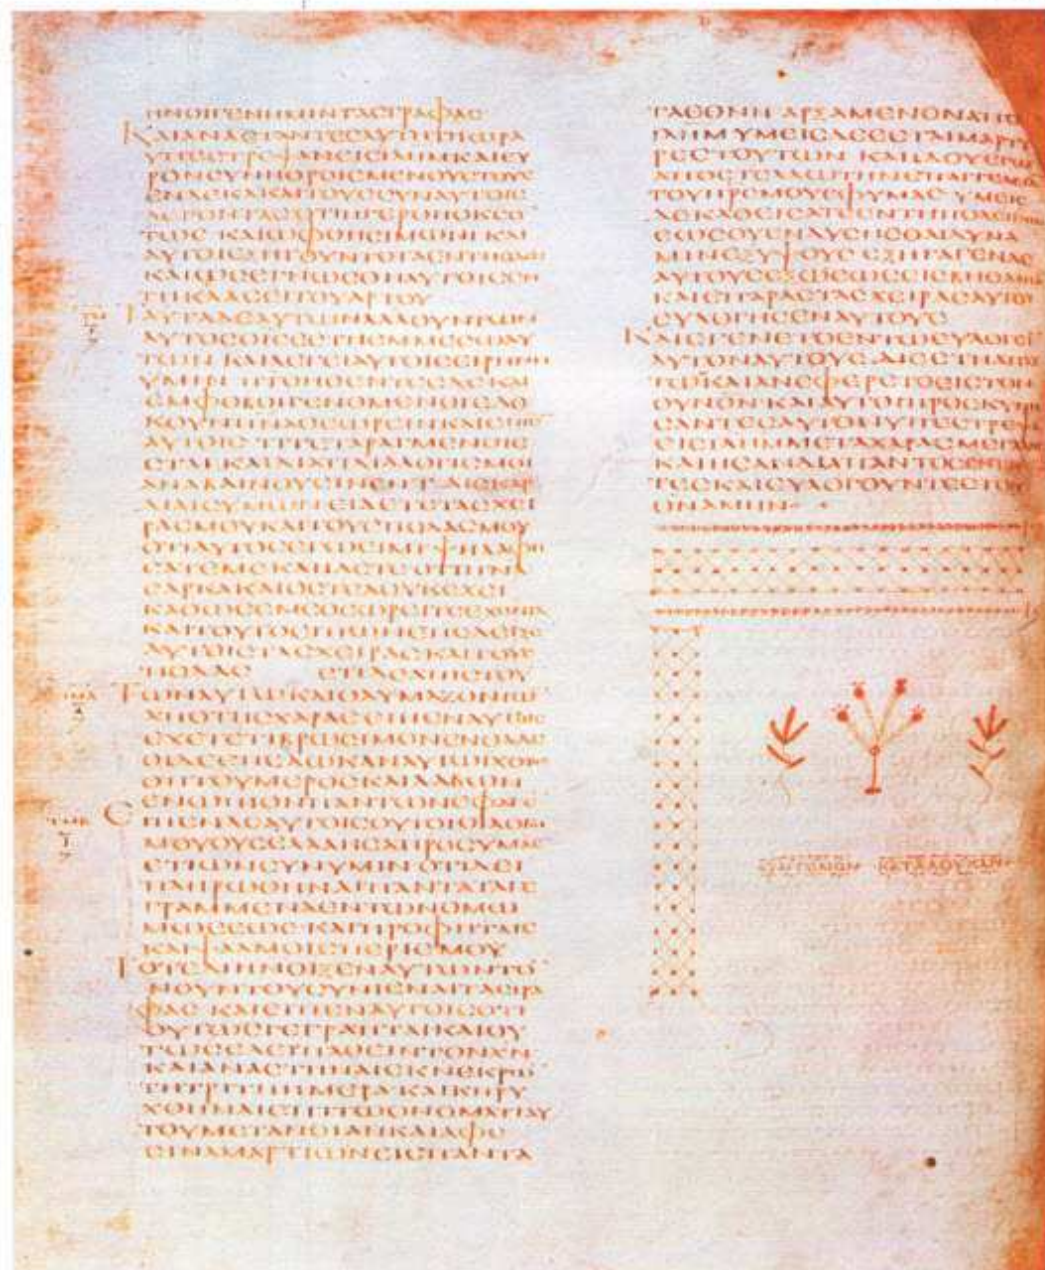 ΗΝΟΙΓΕΝΗΜΙΝΤΑϹΓΡΑΦΑϹ
ΚΑΙΑΝΑϹΤΑΝΤΕϹΑΥΤΗΤΗΩΡΑ
ΥΠΕϹΤΡΕΨΑΝΕΙϹΙΛΗΜΚΑΙΕΥ
ΡΟΝϹΥΝΗΘΡΟΙϹΜΕΝΟΥϹΤΟΥϹ
ΕΝΔΕΚΑΚΑΙΤΟΥϹϹΥΝΑΥΤΟΙϹ
ΛΕΓΟΝΤΑϹΟΤΙΗΓΕΡΘΗΟΚϹΟ
ΤΩϹΚΑΙΩΦΘΗϹΙΜΩΝΙΚΑΙ
ΑΥΤΟΙΕΞΗΓΟΥΝΤΟΤΑΕΝΤΗΟΔΩ
ΚΑΙΩϹΕΓΝΩϹΘΗΑΥΤΟΙϹΕΝ
ΤΗΚΛΑϹΕΙΤΟΥΑΡΤΟΥ
ΤΑΥΤΑΔΕΑΥΤΩΝΛΑΛΟΥΝΤΩΝ
ΑΥΤΟϹΟΙϹΕϹΤΗΕΝΜΕϹΩΑΥ
ΤΩΝΚΑΙΛΕΓΕΙΑΥΤΟΙϹΕΙΡΗΝΗ
ΥΜΙΝΠΤΟΗΘΕΝΤΕϹΔΕΚΑΙ
ΕΜΦΟΒΟΙΓΕΝΟΜΕΝΟΙΕΔΟ
ΚΟΥΝΠΝΑΘΕΩΡΕΙΝΚΑΙΕΙΠΕΝ
ΑΥΤΟΙϹΤΙΤΕΤΑΡΑΓΜΕΝΟΙΕ
ϹΤΑΙΚΑΙΔΙΑΤΙΔΙΑΛΟΓΙϹΜΟΙ
ΑΝΑΒΑΙΝΟΥϹΙΝΕΝΤΑΙϹΚΑΡ
ΔΙΑΙϹΥΜΩΝΕΙΔΕΤΕΤΑϹΧΕΙ
ΡΑϹΜΟΥΚΑΙΤΟΥϹΠΟΔΑϹΜΟΥ
ΟΤΙΑΥΤΟϹΕΓΩΕΙΜΙΨΗΛΑΦΗ
ϹΑΤΕΜΕΚΑΙΙΔΕΤΕΟΤΙΠΝΑ
ϹΑΡΚΑΚΑΙΟϹΤΕΑΟΥΚΕΧΕΙ
ΚΑΘΩϹΕΜΕΘΕΩΡΕΙΤΕΕΧΟΝΤΑ
ΚΑΙΤΟΥΤΟΕΙΠΩΝΕΠΕΔΕΙΞΕ
ΑΥΤΟΙϹΤΑϹΧΕΙΡΑϹΚΑΙΤΟΥϹ
ΠΟΔΑϹ ΕΤΙΔΕΑΠΙϹΤΟΥ
ΤΩΝΑΥΤΩΚΑΙΘΑΥΜΑΖΟΝΤΩ
ΑΠΟΤΗϹΧΑΡΑϹΕΙΠΕΝΑΥΤΟΙϹ
ΕΧΕΤΕΤΙΒΡΩϹΙΜΟΝΕΝΘΑΔΕ
ΟΙΔΕΕΠΕΔΩΚΑΝΑΥΤΩΙΧΘΥΟϹ
ΟΠΤΟΥΜΕΡΟϹΚΑΙΛΑΒΩΝ
ΕΝΩΠΙΟΝΠΑΝΤΩΝΕΦΑΓΕ
ΕΙΠΕΝΔΕΑΥΤΟΙϹΟΥΤΟΙΟΙΛΟΓΟΙ
ΜΟΥΟΥϹΕΛΑΛΗϹΑΠΡΟϹΥΜΑϹ
ΕΤΙΩΝϹΥΝΥΜΙΝΟΤΙΔΕΙ
ΠΛΗΡΩΘΗΝΑΙΠΑΝΤΑΤΑΓΕ
ΓΡΑΜΜΕΝΑΕΝΤΩΝΟΜΩ
ΜΩϹΕΩϹΚΑΙΠΡΟΦΗΤΑΙϹ
ΚΑΙΨΑΛΜΟΙϹΠΕΡΙΕΜΟΥ
ΤΟΤΕΔΙΗΝΟΙΞΕΝΑΥΤΩΝΤΟ
ΝΟΥΝΤΟΥϹΥΝΙΕΝΑΙΤΑϹΓΡΑ
ΦΑϹΚΑΙΕΙΠΕΝΑΥΤΟΙϹΟΤΙ
ΟΥΤΩϹΓΕΓΡΑΠΤΑΙΚΑΙΟΥ
ΤΩϹΕΔΕΙΠΑΘΕΙΝΤΟΝΧΝ
ΚΑΙΑΝΑϹΤΗΝΑΙΕΚΝΕΚΡΩ
ΤΗΤΡΙΤΗΗΜΕΡΑΚΑΙΚΗΡΥ
ΧΘΗΝΑΙΕΠΙΤΩΟΝΟΜΑΤΙΑΥ
ΤΟΥΜΕΤΑΝΟΙΑΝΚΑΙΑΦΕ
ϹΙΝΑΜΑΡΤΙΩΝΕΙϹΠΑΝΤΑ
ΤΑΕΘΝΗΑΡΞΑΜΕΝΟΝΑΠΟ
ΙΛΗΜΥΜΕΙϹΔΕΕϹΤΑΙΜΑΡΤΥ
ΡΕϹΤΟΥΤΩΝΚΑΙΙΔΟΥΕΓΩ
ΑΠΟϹΤΕΛΛΩΤΗΝΕΠΑΓΓΕΛΙΑ
ΤΟΥΠΡϹΜΟΥΕΦΥΜΑϹΥΜΕΙϹ
ΔΕΚΑΘΕΙϹΑΤΕΕΝΤΗΠΟΛΕΙ
ΕΩϹΟΥΕΝΔΥϹΗϹΘΑΙΔΥΝΑ
ΜΙΝΕΞΥΨΟΥϹΕΞΗΓΑΓΕΝΔΕ
ΑΥΤΟΥϹΕΞΩΕΩϹΕΙϹΒΗΘΑΝΙΑ
ΚΑΙΕΠΑΡΑϹΤΑϹΧΕΙΡΑϹΑΥΤΟΥ
ΕΥΛΟΓΗϹΕΝΑΥΤΟΥϹ
ΚΑΙΕΓΕΝΕΤΟΕΝΤΩΕΥΛΟΓΕΙ
ΑΥΤΟΝΑΥΤΟΥϹΔΙΕϹΤΗΑΠΑΥ
ΤΩΚΑΙΑΝΕΦΕΡΕΤΟΕΙϹΤΟΝ
ΟΥΝΟΝΚΑΙΑΥΤΟΙΠΡΟϹΚΥΝΗ
ϹΑΝΤΕϹΑΥΤΟΝΥΠΕϹΤΡΕΨΑ
ΕΙϹΙΛΗΜΜΕΤΑΧΑΡΑϹΜΕΓΑΛΗϹ
ΚΑΙΗϹΑΝΔΙΑΠΑΝΤΟϹΕΝΤΩ
ΤΕϹΚΑΙΕΥΛΟΓΟΥΝΤΕϹΤΟ
ΘΝΑΜΗΝ
ΕΥΑΓΓΕΛΙΟΝ ΚΑΤΑΛΟΥΚΑΝ